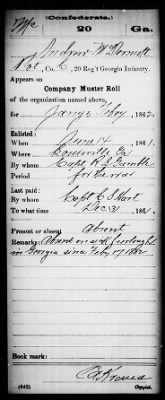 Mc (Confederate.)
20 Ga.
Andrew McDermott
Pvt., Co. C, 20 Reg't Georgia Infantry.
Appears on
Company Muster Roll
of the organization named above,
for Jany & Feby, 1862.
Enlisted:
When June 14, 1861.
Where Ga
By whom Capt R. J.
Period for the war
Last paid:
By whom Capt
To what time Dec 31, 1861.
Present or absent Absent
Remarks: Absent on sick furlough
in Georgia since Feby 17 1862
Book mark:
(642) Copyist.